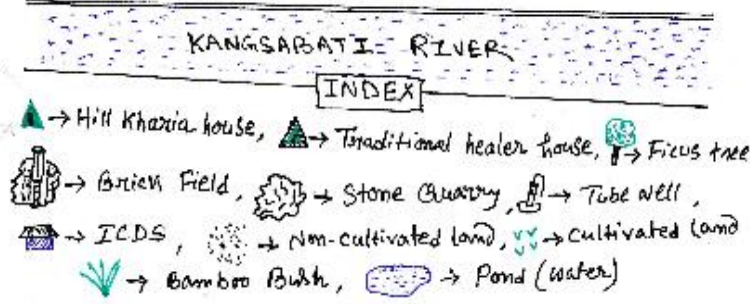 KANGSABATI RIVER
INDEX
→ Hill Kharia house, → Traditional healer house, → Ficus tree
→ Brick Field, → Stone Quarry, → Tube well,
→ ICDS, → Non-cultivated land, → Cultivated land
→ Bamboo Bush, → Pond (water)